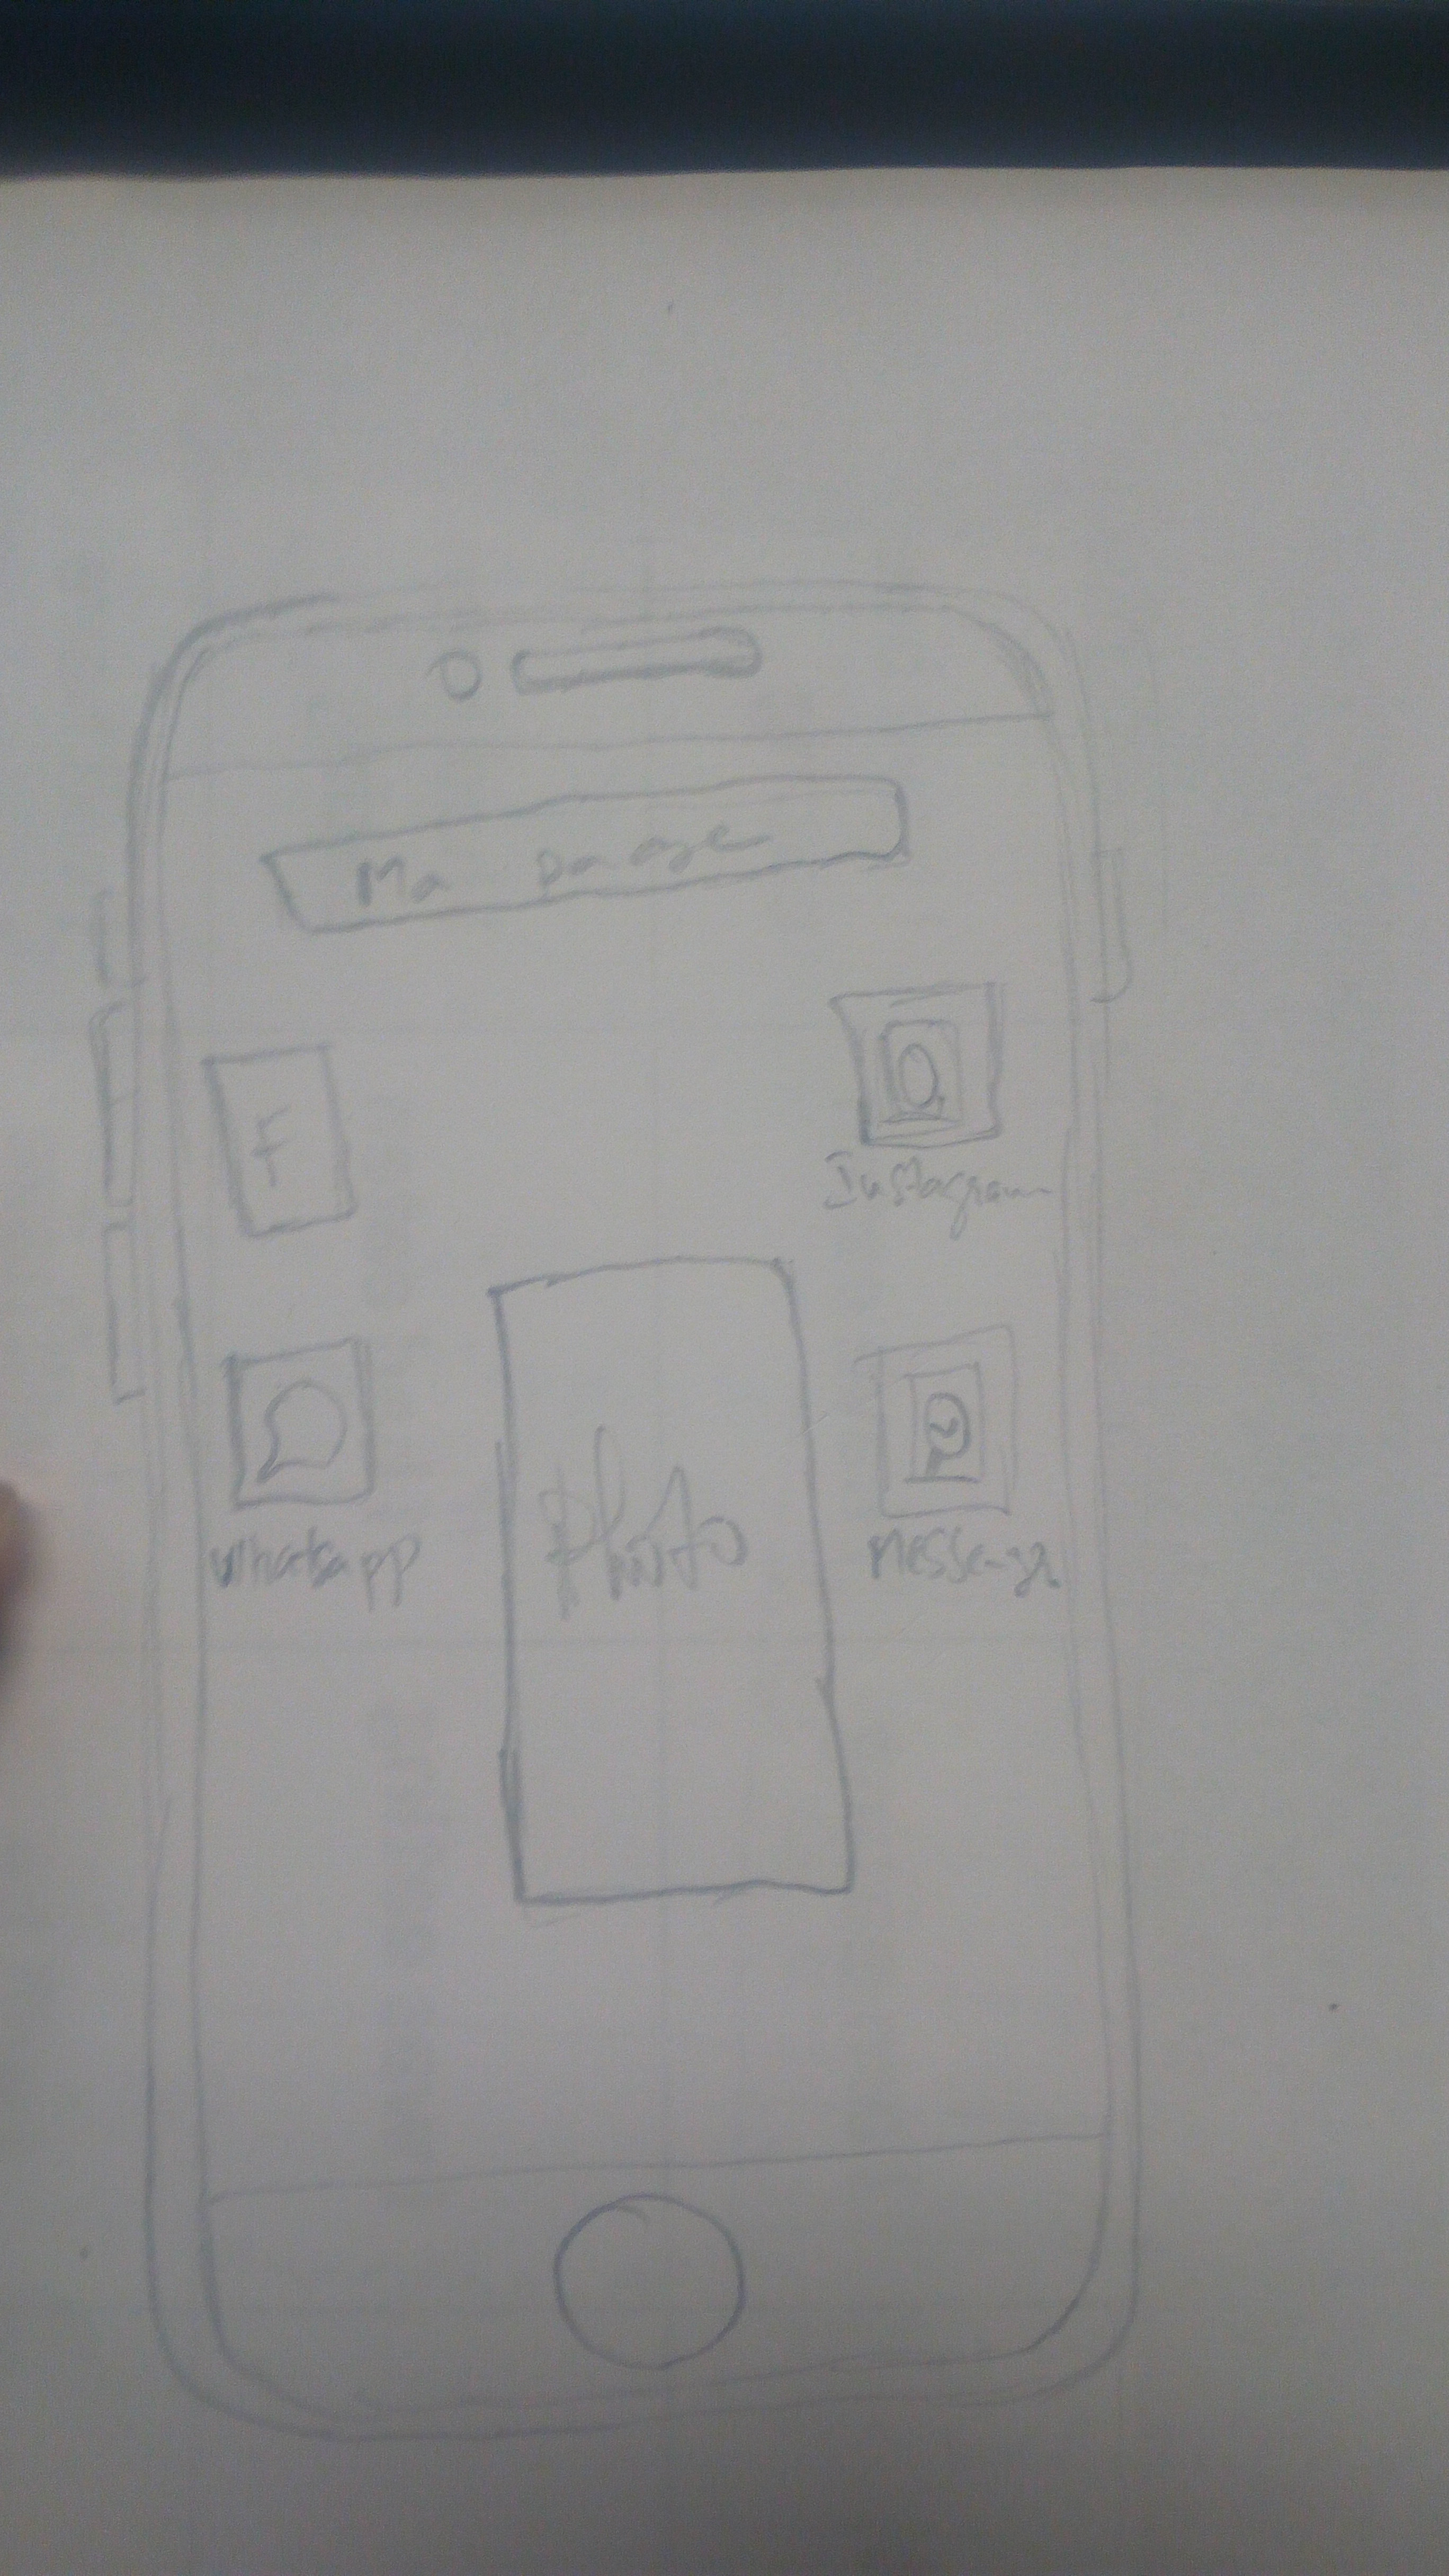 Ma
F
Instagram
Whatsapp
Photo
Message